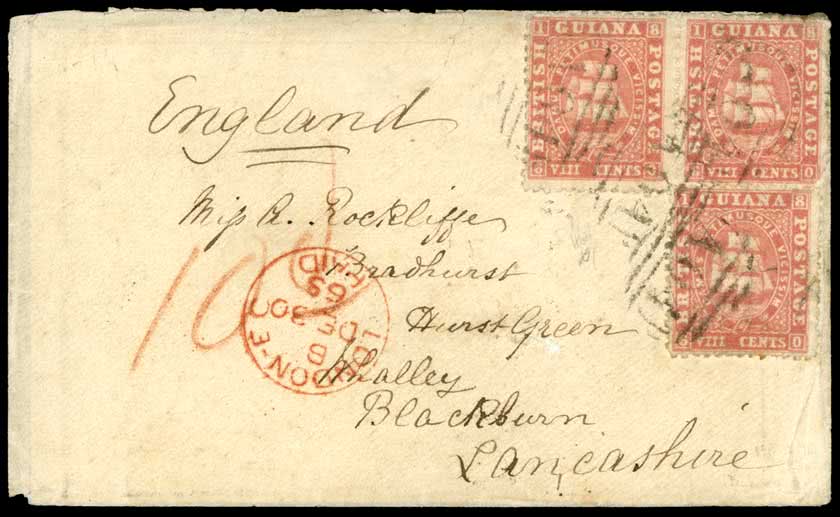 1 GUIANA 8
BRITISH
POSTAGE
DAMUS PETIMUSQUE VICISSIM
6 VIII CENTS 0
1 GUIANA 8
BRITISH
POSTAGE
DAMUS PETIMUSQUE VICISSIM
VIII CENTS 0
1 8
BRITISH
POSTAGE
PETIMUSQUE VICISSIM
VIII CENTS 0
England
Miss A. Rockliffe
Bradhurst
Hurst Green
Whalley
Blackburn
Lancashire
10
LONDON-E.C
B
DE 30
65
PAID